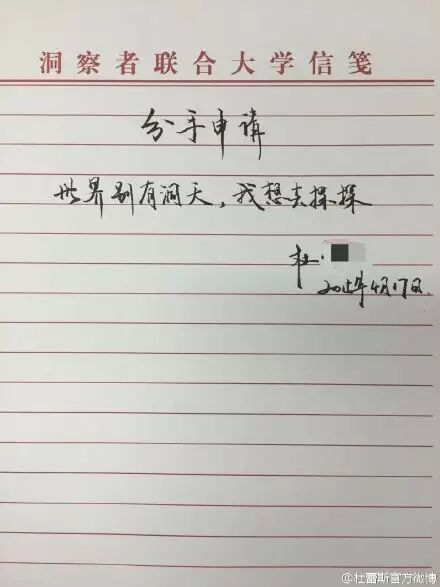 洞察者联合大学信笺
分手申请
世界别有洞天，我想去探探
杜·
2015年4月17日
@杜蕾斯官方微博